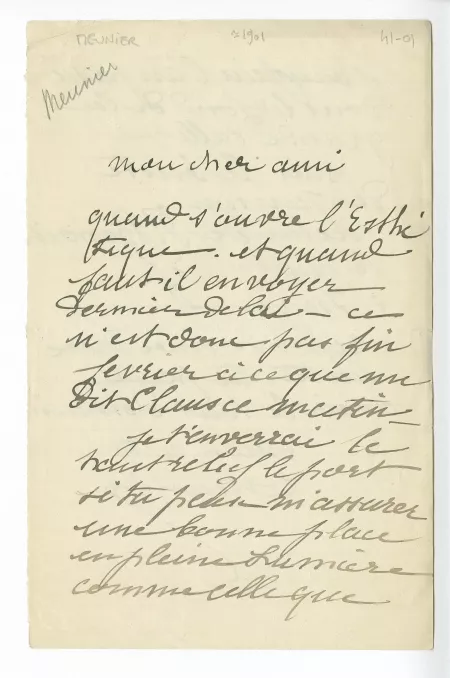 MEUNIER
± 1901
41-01
Meunier
mon cher ami
quand s'ouvre l'Esthé
tique . et quand
faut il envoyer
dernier delai – ce
n'est donc pas fin
fevrier à ce que me
Dit Claus ce matin
je t'enverrai le
haut relief le port
si tu peux m'assurer
une bonne place
en pleine Lumière
comme celle que